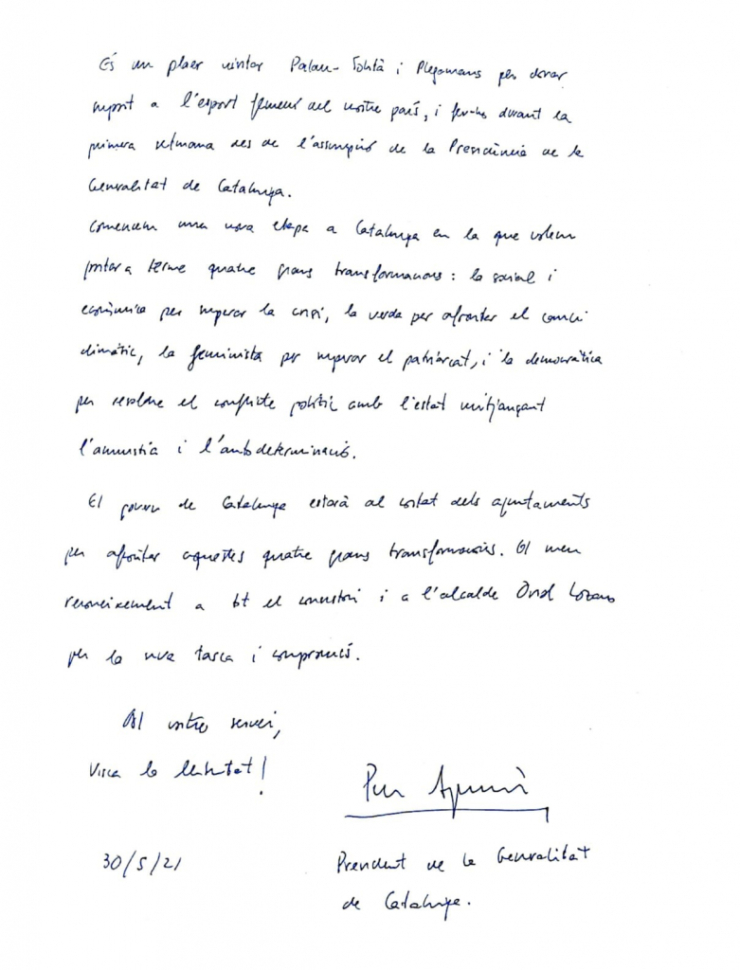 És un plaer visitar Palau-Solità i Plegamans per donar
suport a l'esport femení del nostre país, i fer-ho durant la
primera setmana des de l'assumpció de la Presidència de la
Generalitat de Catalunya.
Comencem una nova etapa a Catalunya en la que volem
portar a terme quatre grans transformacions: la social i
econòmica per superar la crisi, la verda per afrontar el canvi
climàtic, la feminista per superar el patriarcat, i la democràtica
per resoldre el conflicte polític amb l'estat mitjançant
l'amnistia i l'autodeterminació.
El govern de Catalunya estarà al costat dels ajuntaments
per afrontar aquestes quatre grans transformacions. El meu
reconeixement a tot el consistori i a l'alcalde Oriol Lozano
per la seva tasca i compromís.
Al vostre servei,
Visca la llibertat!
Pere Aragonès
30/5/21
President de la Generalitat
de Catalunya.